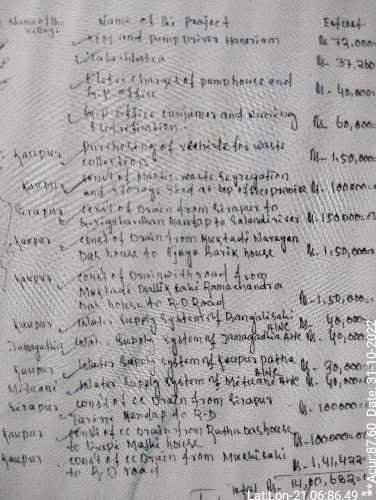 Name of the village Name of the project Estcost
STM and Pump Driver Honorium Rs. 72,000=
Jalachhatra Rs- 37,260
Eletric charges of pumphouse and G.P-office Rs- 40,000=
G.P office consumer and
Electrification. Rs- 60,000=
Kaupur Purchesing of vechile for waste
collection Rs- 1,50,000=
Kaupur const of plastic waste segregation
and storage shed at GP office premise Rs. 100000=
Sirapur const of Drain from Sirapur to
Mandap to Salandi river Rs 150000=00
Kaupur const of Drain from Muktadei Narayan
Das house to Ajaya Barik house Rs- 1,50,000=
Kaupur const of Drain with road from
Muktadei Mallik sahi Ramachandra
Das house to R-D Road Rs- 1,50,000=
Kaupur Water Supply System of Bangalisahi AWC Rs- 40,000=
Jamagadhia Wat. Supply system of Jamagadhia AWC Rs- 40,000
Kaupur Water Supply system of Kaupur patna AWC Rs- 30,000=
Mituani Water Supply System of Mituani AWC Rs- 40,000=
Sirapur const of cc Drain from Sirapur
Tarini Mandap to R-D Rs- 100000=
Kaupur const of cc Drain from Ratha Das house
to house Rs- 100000=00
Kaupur const of cc Drain from Mukhi sahi
to R-D road Rs- 1,41,422=
Total Rs- 14,00,682=
Lat Lon-21.06,86.49
Acur:87.60 Date:31-10-2022